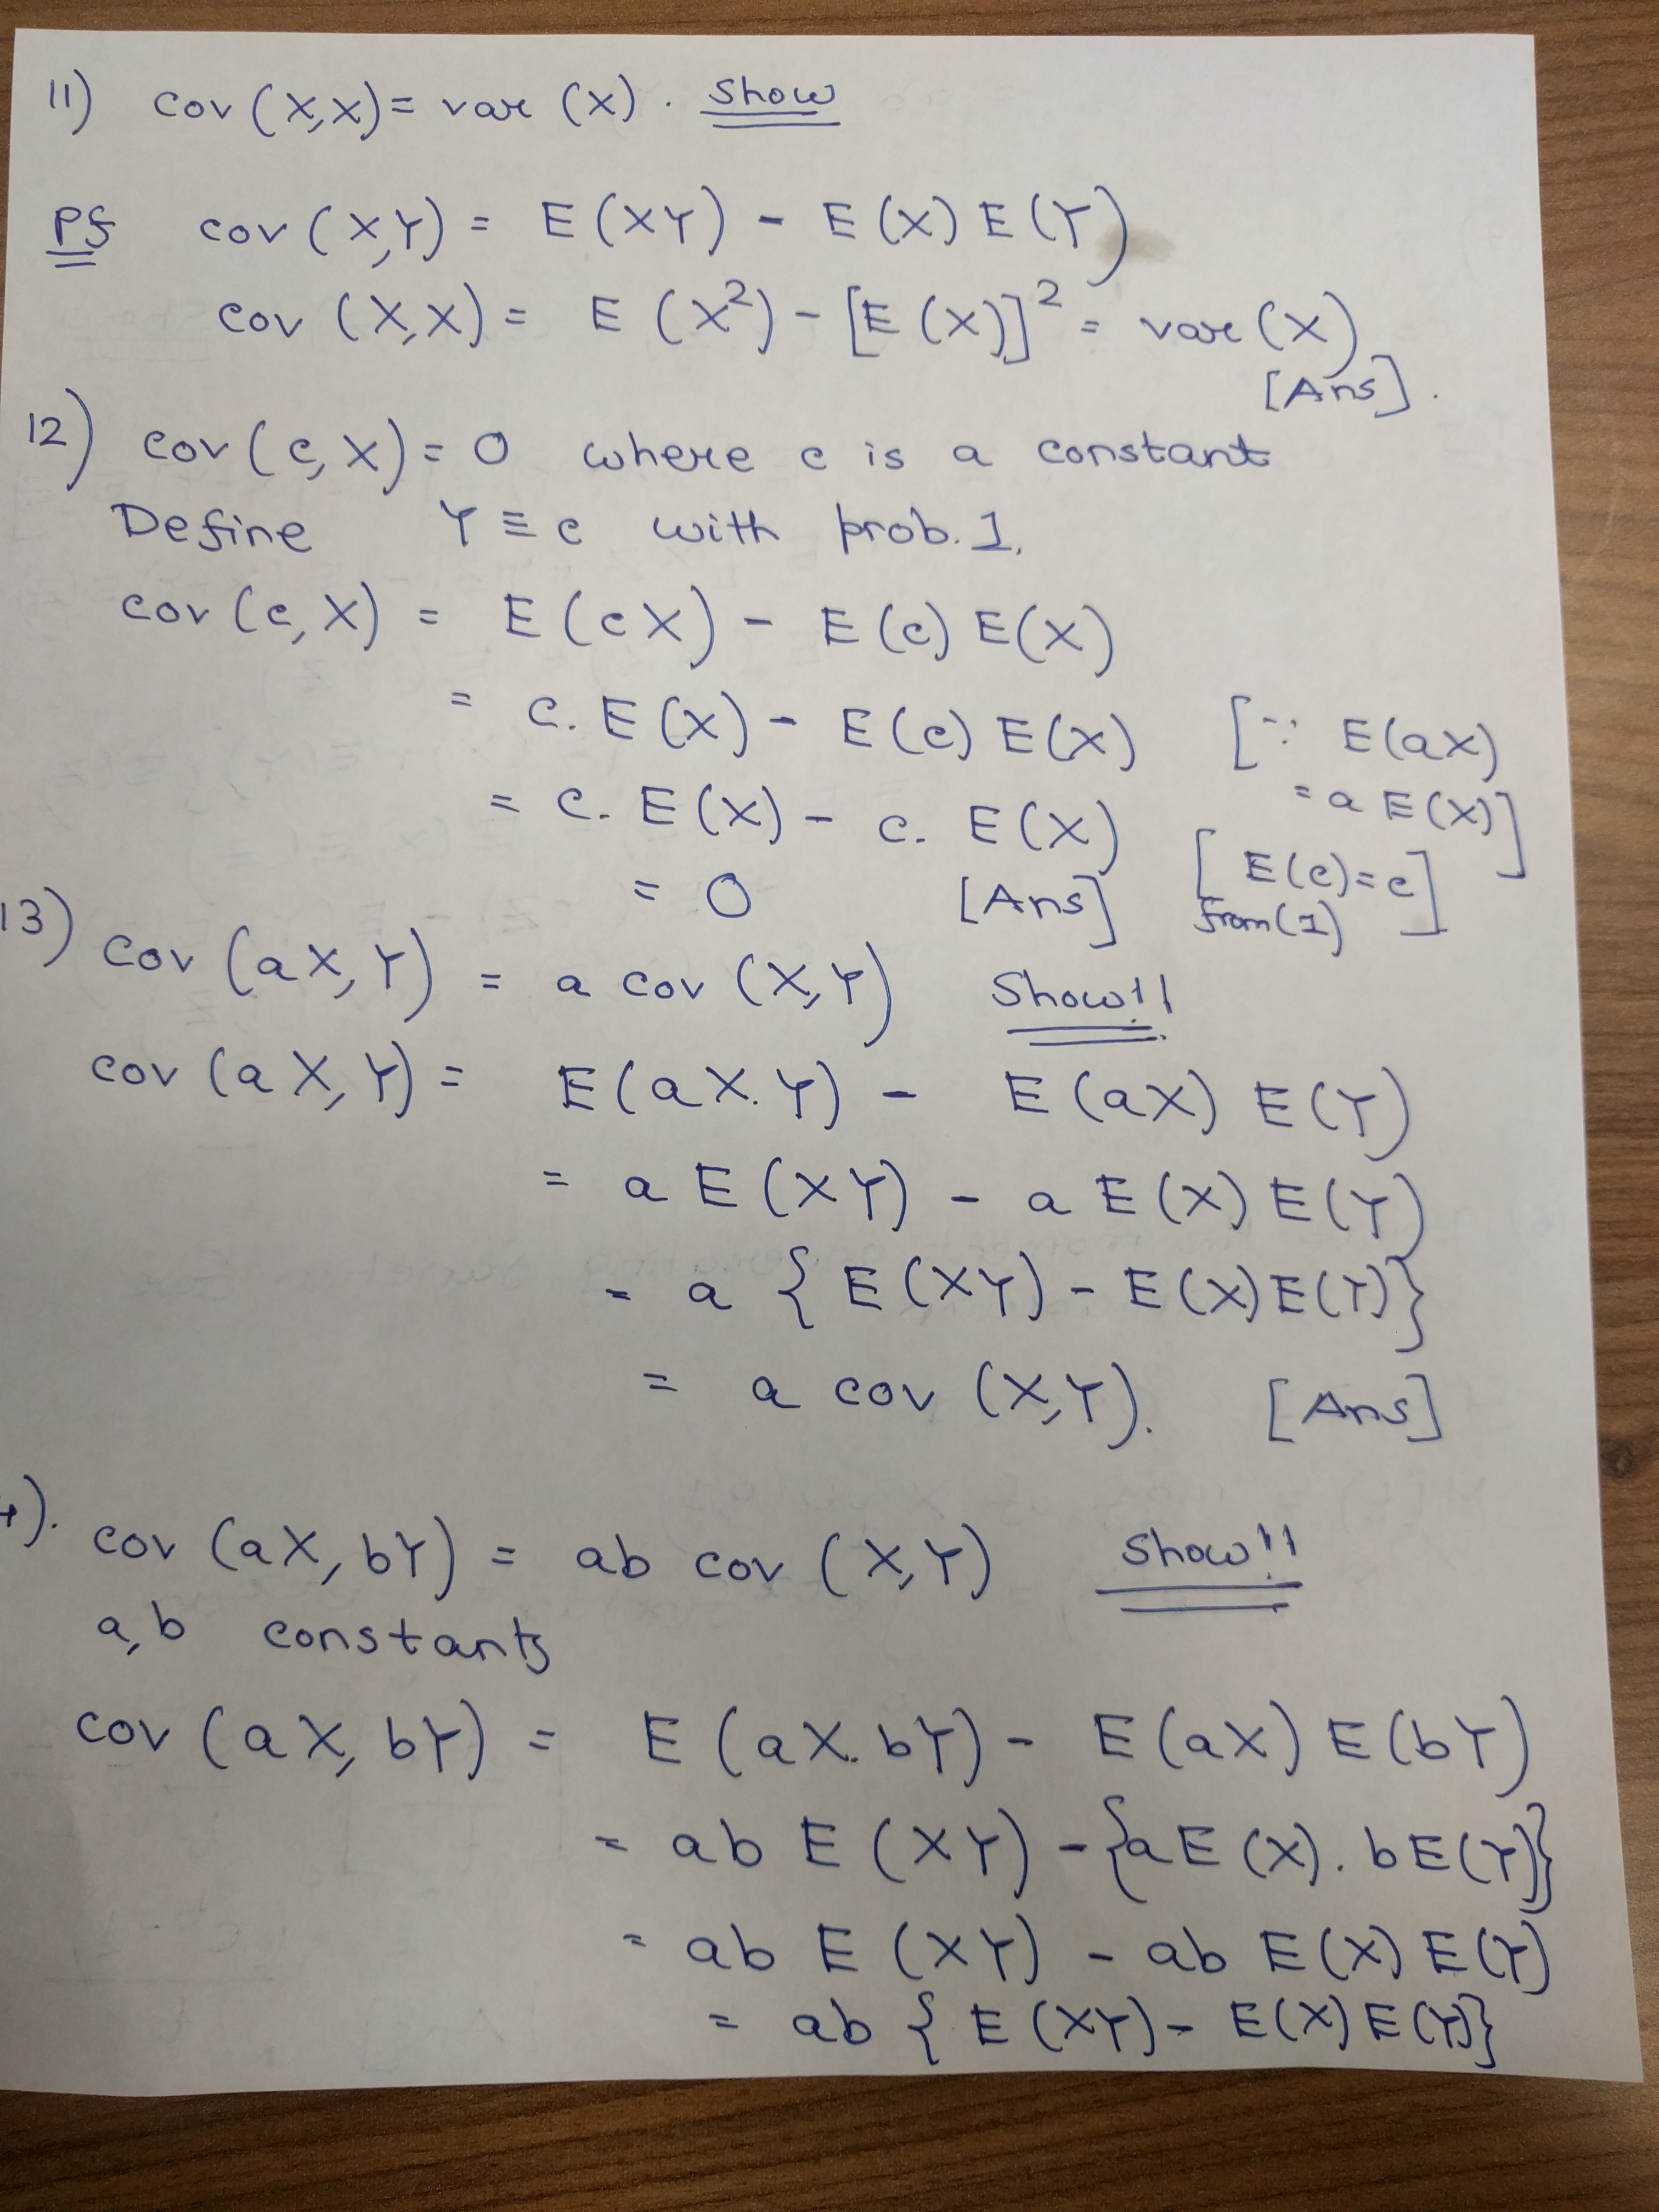 11) cov (X,X) = var (X). Show
Pf cov (X,Y) = E (XY) - E (X) E (Y)
cov (X,X) = E (X²) - [E (X)]² = var (X)
[Ans].
12) cov (c, X) = 0 where c is a constant
Define Y ≡ c with prob. 1.
cov (c, X) = E (cX) - E (c) E(X)
= c. E (X) - E (c) E (X) [∵ E(aX)
= a E (X)]
= c. E (X) - c. E (X) [E(c) = c]
from (1)
= 0 [Ans]
13) cov (aX, Y) = a cov (X,Y) Show!!
cov (aX, Y) = E (aX.Y) - E (aX) E (Y)
= a E (XY) - a E (X) E (Y)
= a { E (XY) - E (X) E (Y)}
= a cov (X,Y). [Ans]
).
cov (aX, bY) = ab cov (X,Y) Show!!
a,b constants
cov (aX, bY) = E (aX. bY) - E (aX) E (bY)
= ab E (XY) - {a E (X). b E (Y)}
= ab E (XY) - ab E (X) E (Y)
= ab { E (XY) - E (X) E (Y)}